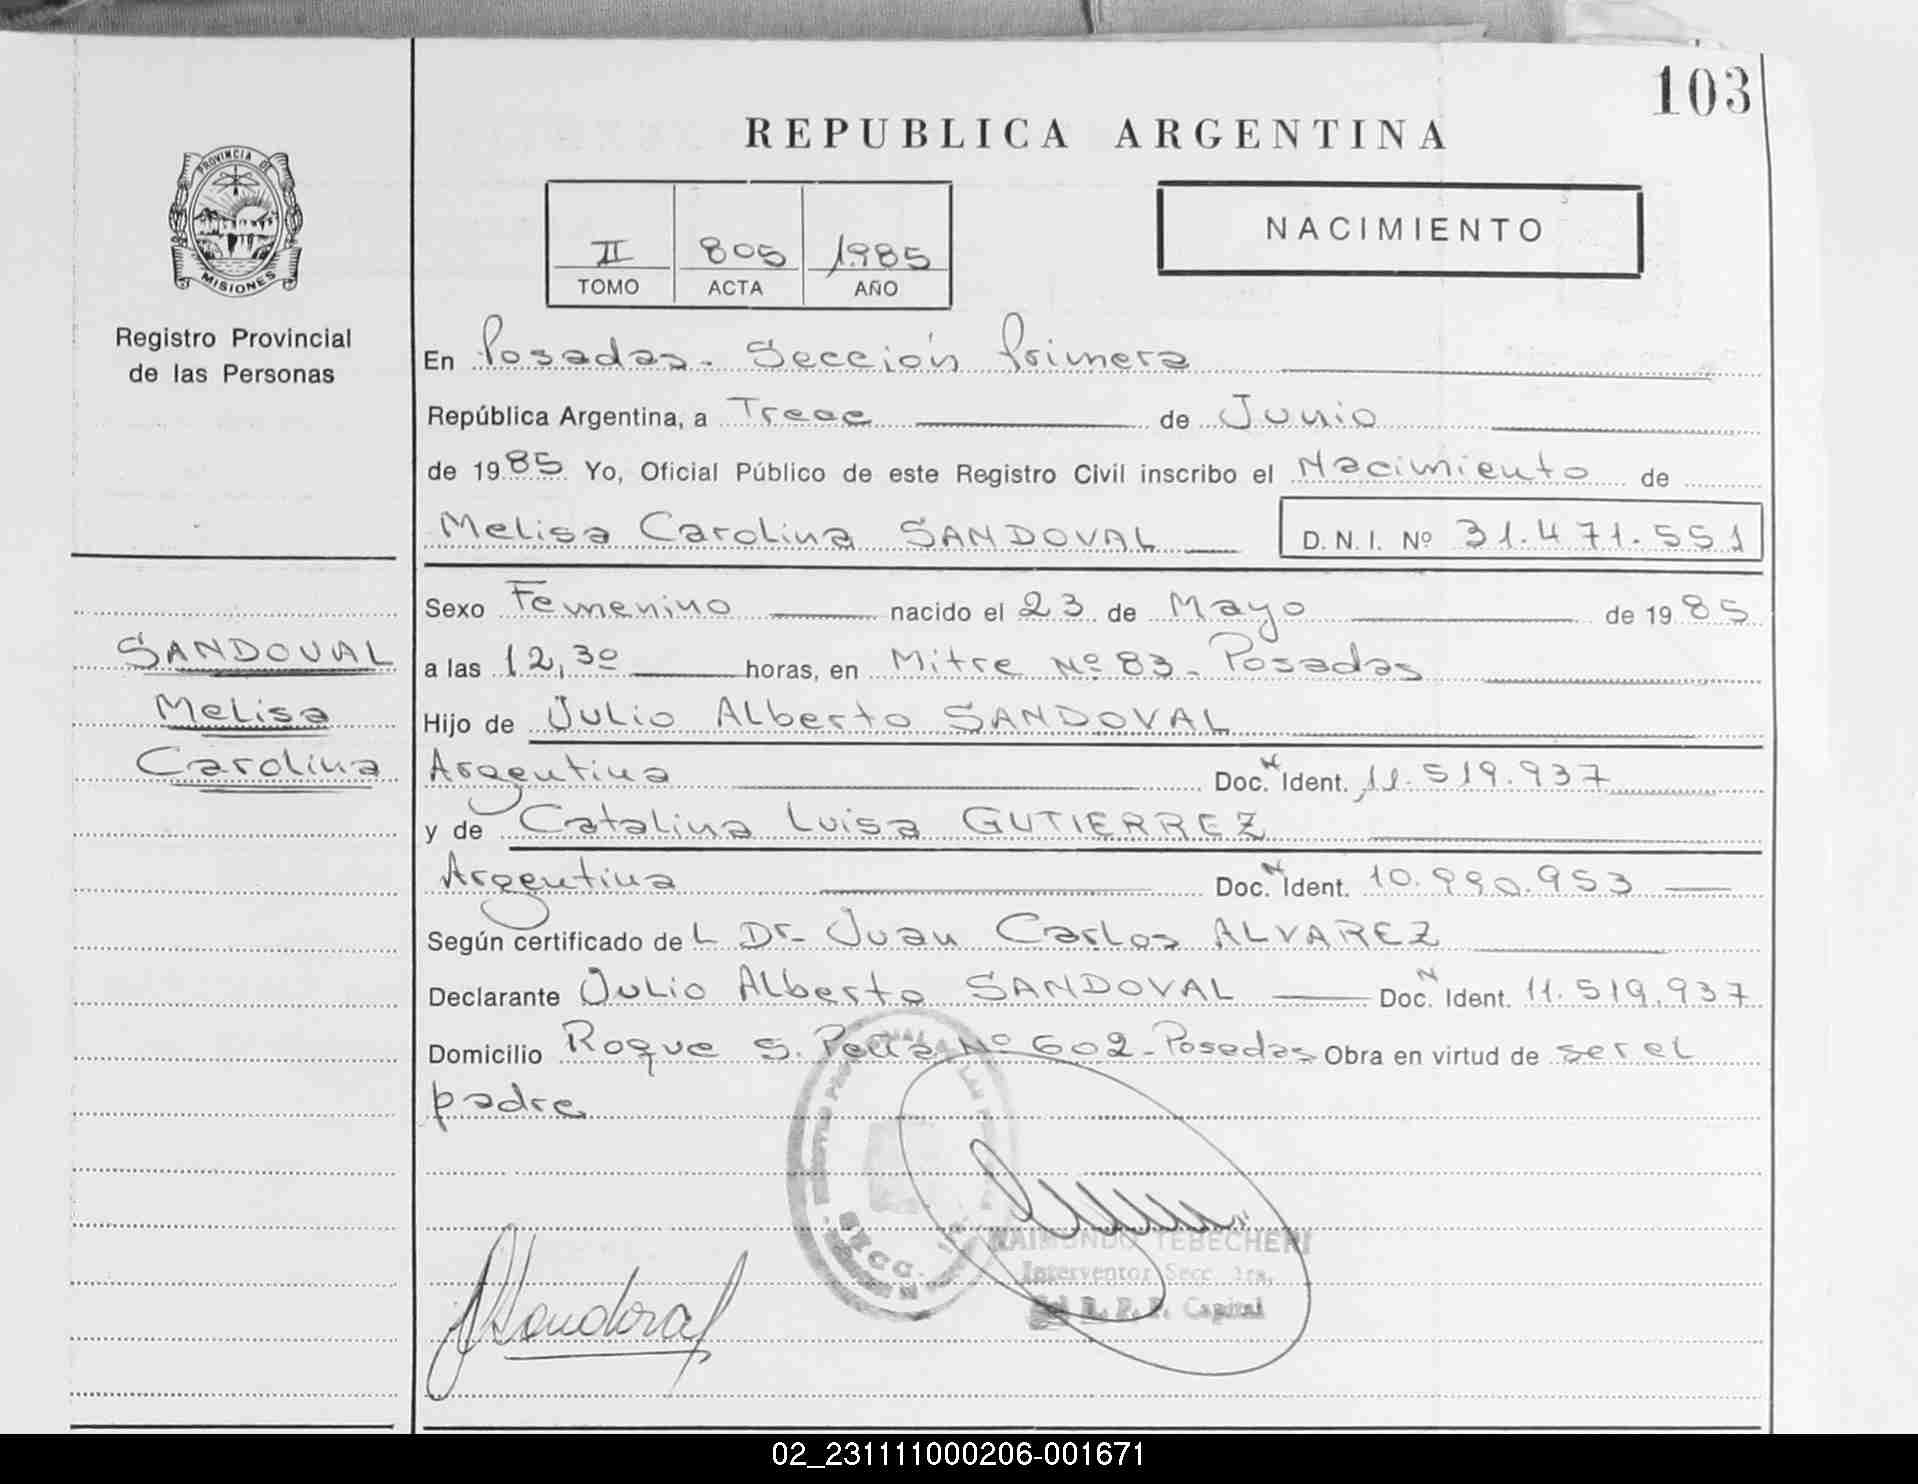 103
REPUBLICA ARGENTINA
PROVINCIA DE
MISIONES
Registro Provincial
de las Personas
II 805 1985
TOMO ACTA AÑO
NACIMIENTO
En Posadas - Sección Primera
República Argentina, a Trece de Junio
de 1985 Yo, Oficial Público de este Registro Civil inscribo el Nacimiento de
Melisa Carolina SANDOVAL D.N.I. Nº 31.471.551
SANDOVAL
Melisa
Carolina
Sexo Femenino nacido el 23 de Mayo de 1985
a las 12,30 horas, en Mitre Nº 83 - Posadas
Hijo de Julio Alberto SANDOVAL
Argentina Doc. N Ident. 11.519.937
y de Catalina Luisa GUTIERREZ
Argentina Doc. N Ident. 10.990.953
Según certificado del Dr. Juan Carlos ALVAREZ
Declarante Julio Alberto SANDOVAL Doc. N Ident. 11.519.937
Domicilio Roque S. Peña Nº 602 - Posadas Obra en virtud de ser el
padre
SECC.
RAIMUNDO TEBECHERI
Interventor Secc. 1ra.
R. P. P. Capital
Sandoval
02_231111000206-001671